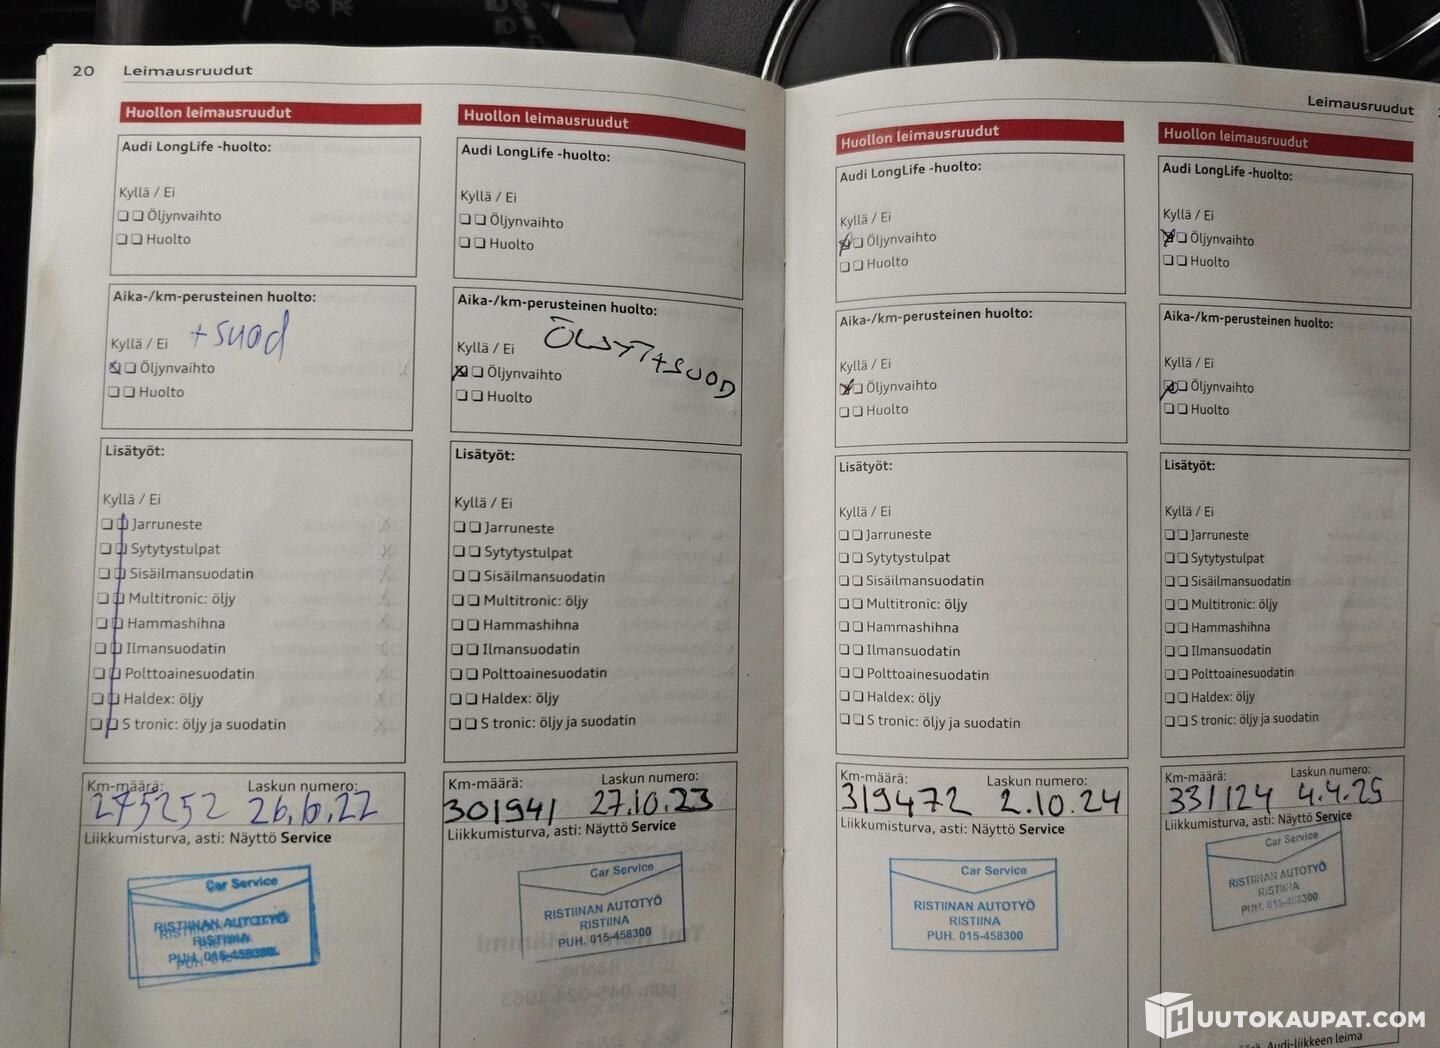 20 Leimausruudut
Huollon leimausruudut
Audi LongLife -huolto:
Kyllä / Ei
Öljynvaihto
Huolto
Aika-/km-perusteinen huolto:
+suod
Kyllä / Ei
Öljynvaihto
Huolto
Lisätyöt:
Kyllä / Ei
Jarruneste
Sytytystulpat
Sisäilmansuodatin
Multitronic: öljy
Hammashihna
Ilmansuodatin
Polttoainesuodatin
Haldex: öljy
S tronic: öljy ja suodatin
Km-määrä: Laskun numero:
275252 26.6.22
Liikkumisturva, asti: Näyttö Service
Car Service
RISTIINAN AUTOTYÖ
RISTIINA
PUH. 015-458300
Huollon leimausruudut
Audi LongLife -huolto:
Kyllä / Ei
Öljynvaihto
Huolto
Aika-/km-perusteinen huolto:
ÖLJYT+SUOD
Kyllä / Ei
Öljynvaihto
Huolto
Lisätyöt:
Kyllä / Ei
Jarruneste
Sytytystulpat
Sisäilmansuodatin
Multitronic: öljy
Hammashihna
Ilmansuodatin
Polttoainesuodatin
Haldex: öljy
S tronic: öljy ja suodatin
Km-määrä: Laskun numero:
301941 27.10.23
Liikkumisturva, asti: Näyttö Service
Car Service
RISTIINAN AUTOTYÖ
RISTIINA
PUH. 015-458300
Leimausruudut
Huollon leimausruudut
Audi LongLife -huolto:
Kyllä / Ei
Öljynvaihto
Huolto
Aika-/km-perusteinen huolto:
Kyllä / Ei
Öljynvaihto
Huolto
Lisätyöt:
Kyllä / Ei
Jarruneste
Sytytystulpat
Sisäilmansuodatin
Multitronic: öljy
Hammashihna
Ilmansuodatin
Polttoainesuodatin
Haldex: öljy
S tronic: öljy ja suodatin
Km-määrä: Laskun numero:
319472 2.10.24
Liikkumisturva, asti: Näyttö Service
Car Service
RISTIINAN AUTOTYÖ
RISTIINA
PUH. 015-458300
Huollon leimausruudut
Audi LongLife -huolto:
Kyllä / Ei
Öljynvaihto
Huolto
Aika-/km-perusteinen huolto:
Kyllä / Ei
Öljynvaihto
Huolto
Lisätyöt:
Kyllä / Ei
Jarruneste
Sytytystulpat
Sisäilmansuodatin
Multitronic: öljy
Hammashihna
Ilmansuodatin
Polttoainesuodatin
Haldex: öljy
S tronic: öljy ja suodatin
Km-määrä: Laskun numero:
331124 4.4.25
Liikkumisturva, asti: Näyttö Service
Car Service
RISTIINAN AUTOTYÖ
RISTIINA
PUH. 015-458300
Audi-liikkeen leima
HUUTOKAUPAT.COM